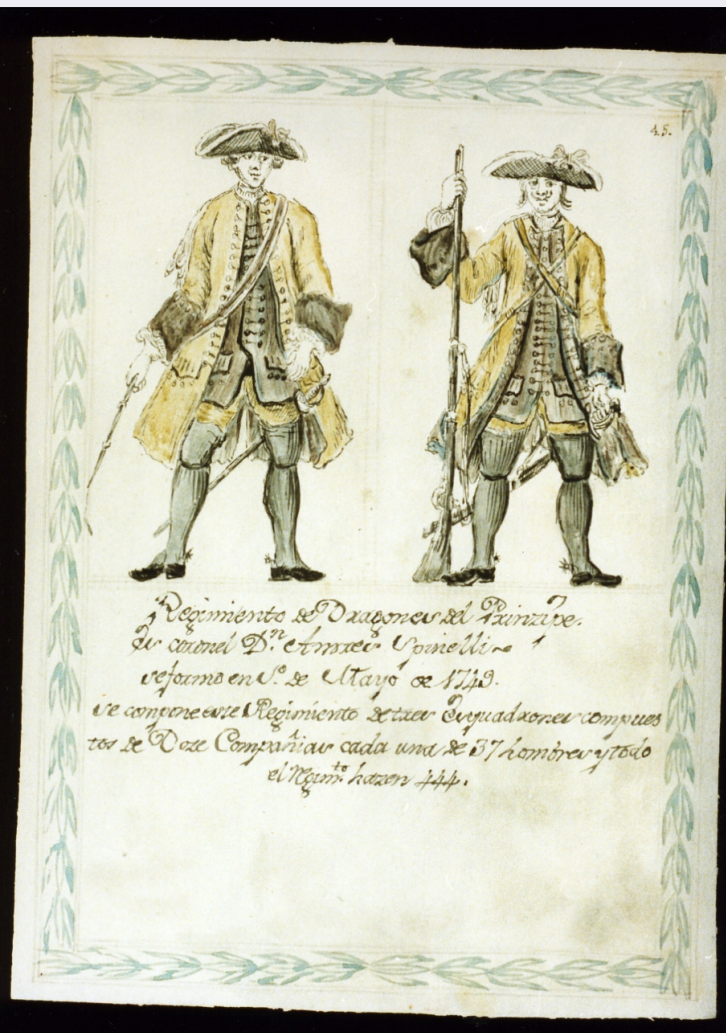 45.
Regimiento de Dragones del Prinzipe.
Es coronel D.n Andres Spinelli
se formo en 1.o de Mayo de 1749.
se compone este Regimiento de tres Esquadrones compues
tos de Doze Compañias cada una de 37 hombres y todo
el Regim.to hazen 444.